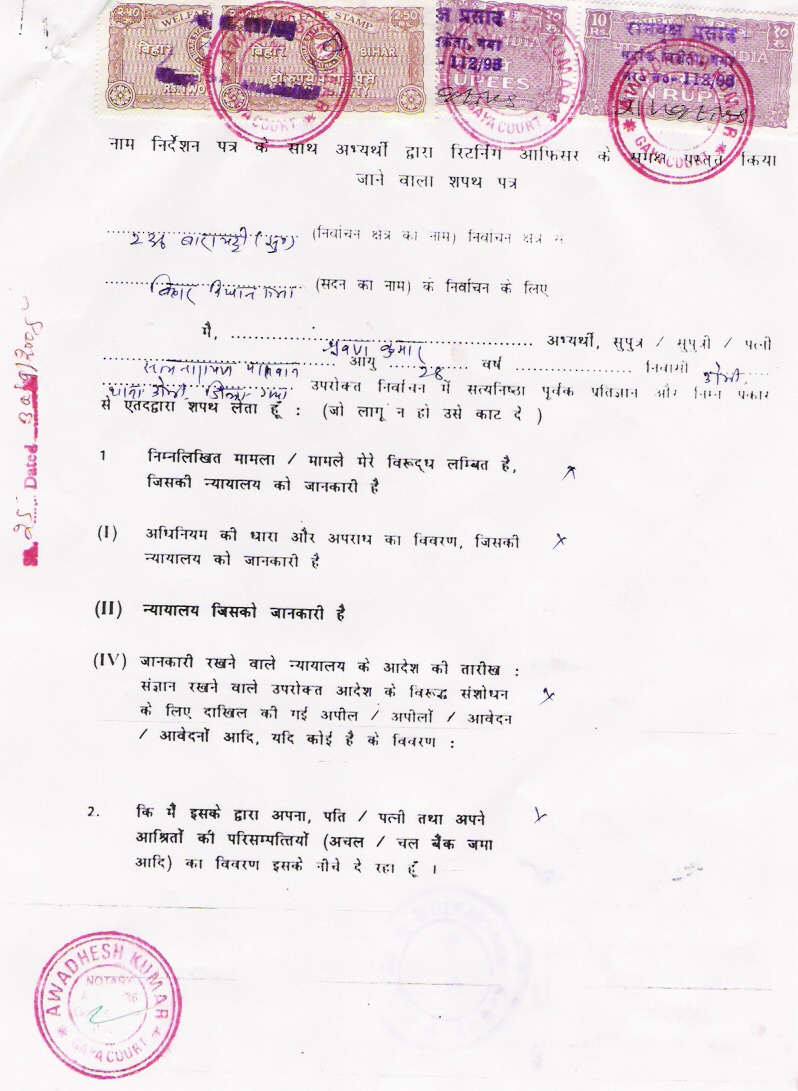 WELFARE STAMP
बिहार बिहार BIHAR
RS. TWO दो रुपये पचास पैसे FIFTY
2.50
म प्रसाद
गया
- 112/98
INDIA
RUPEES
10 Rs.
रामबक्ष प्रसाद
गया
- 112/98
INDIA
TEN RUPEES
AWADHESH KUMAR
GAYA COURT
नाम निर्देशन पत्र के साथ अभ्यर्थी द्वारा रिटर्निंग आफिसर के समक्ष प्रस्तुत किया
जाने वाला शपथ पत्र
236 बाराचट्टी (सु०) (निर्वाचन क्षत्र का नाम) निर्वाचन क्षत्र से
बिहार विधान सभा (सदन का नाम) के निर्वाचन के लिए
मै, श्रवण कुमार अभ्यर्थी, सुपुत्र / सुपुत्री / पत्नी
सत्यनारायण पासवान आयु 28 वर्ष निवासी डोभी,
थाना डोभी, जिला गया उपरोक्त निर्वाचन में सत्यनिष्ठा पूर्वक प्रतिज्ञान और निम्न प्रकार
से एतदद्वारा शपथ लेता हूँ : (जो लागू न हो उसे काट दे )
1 निम्नलिखित मामला / मामले मेरे विरूद्ध लम्बित है, x
जिसकी न्यायालय को जानकारी है
(I) अधिनियम की धारा और अपराध का विवरण, जिसकी x
न्यायालय को जानकारी है
(II) न्यायालय जिसको जानकारी है
(IV) जानकारी रखने वाले न्यायालय के आदेश की तारीख :
संज्ञान रखने वाले उपरोक्त आदेश के विरूद्ध संशोधन x
के लिए दाखिल की गई अपील / अपीलों / आवेदन
/ आवेदनों आदि, यदि कोई है के विवरण :
2. कि मैं इसके द्वारा अपना, पति / पत्नी तथा अपने x
आश्रितों की परिसम्पत्तियों (अचल / चल बैंक जमा
आदि) का विवरण इसके नीचे दे रहा हूँ ।
25 Dated 30/9/2005
AWADHESH KUMAR
NOTARY
GAYA COURT